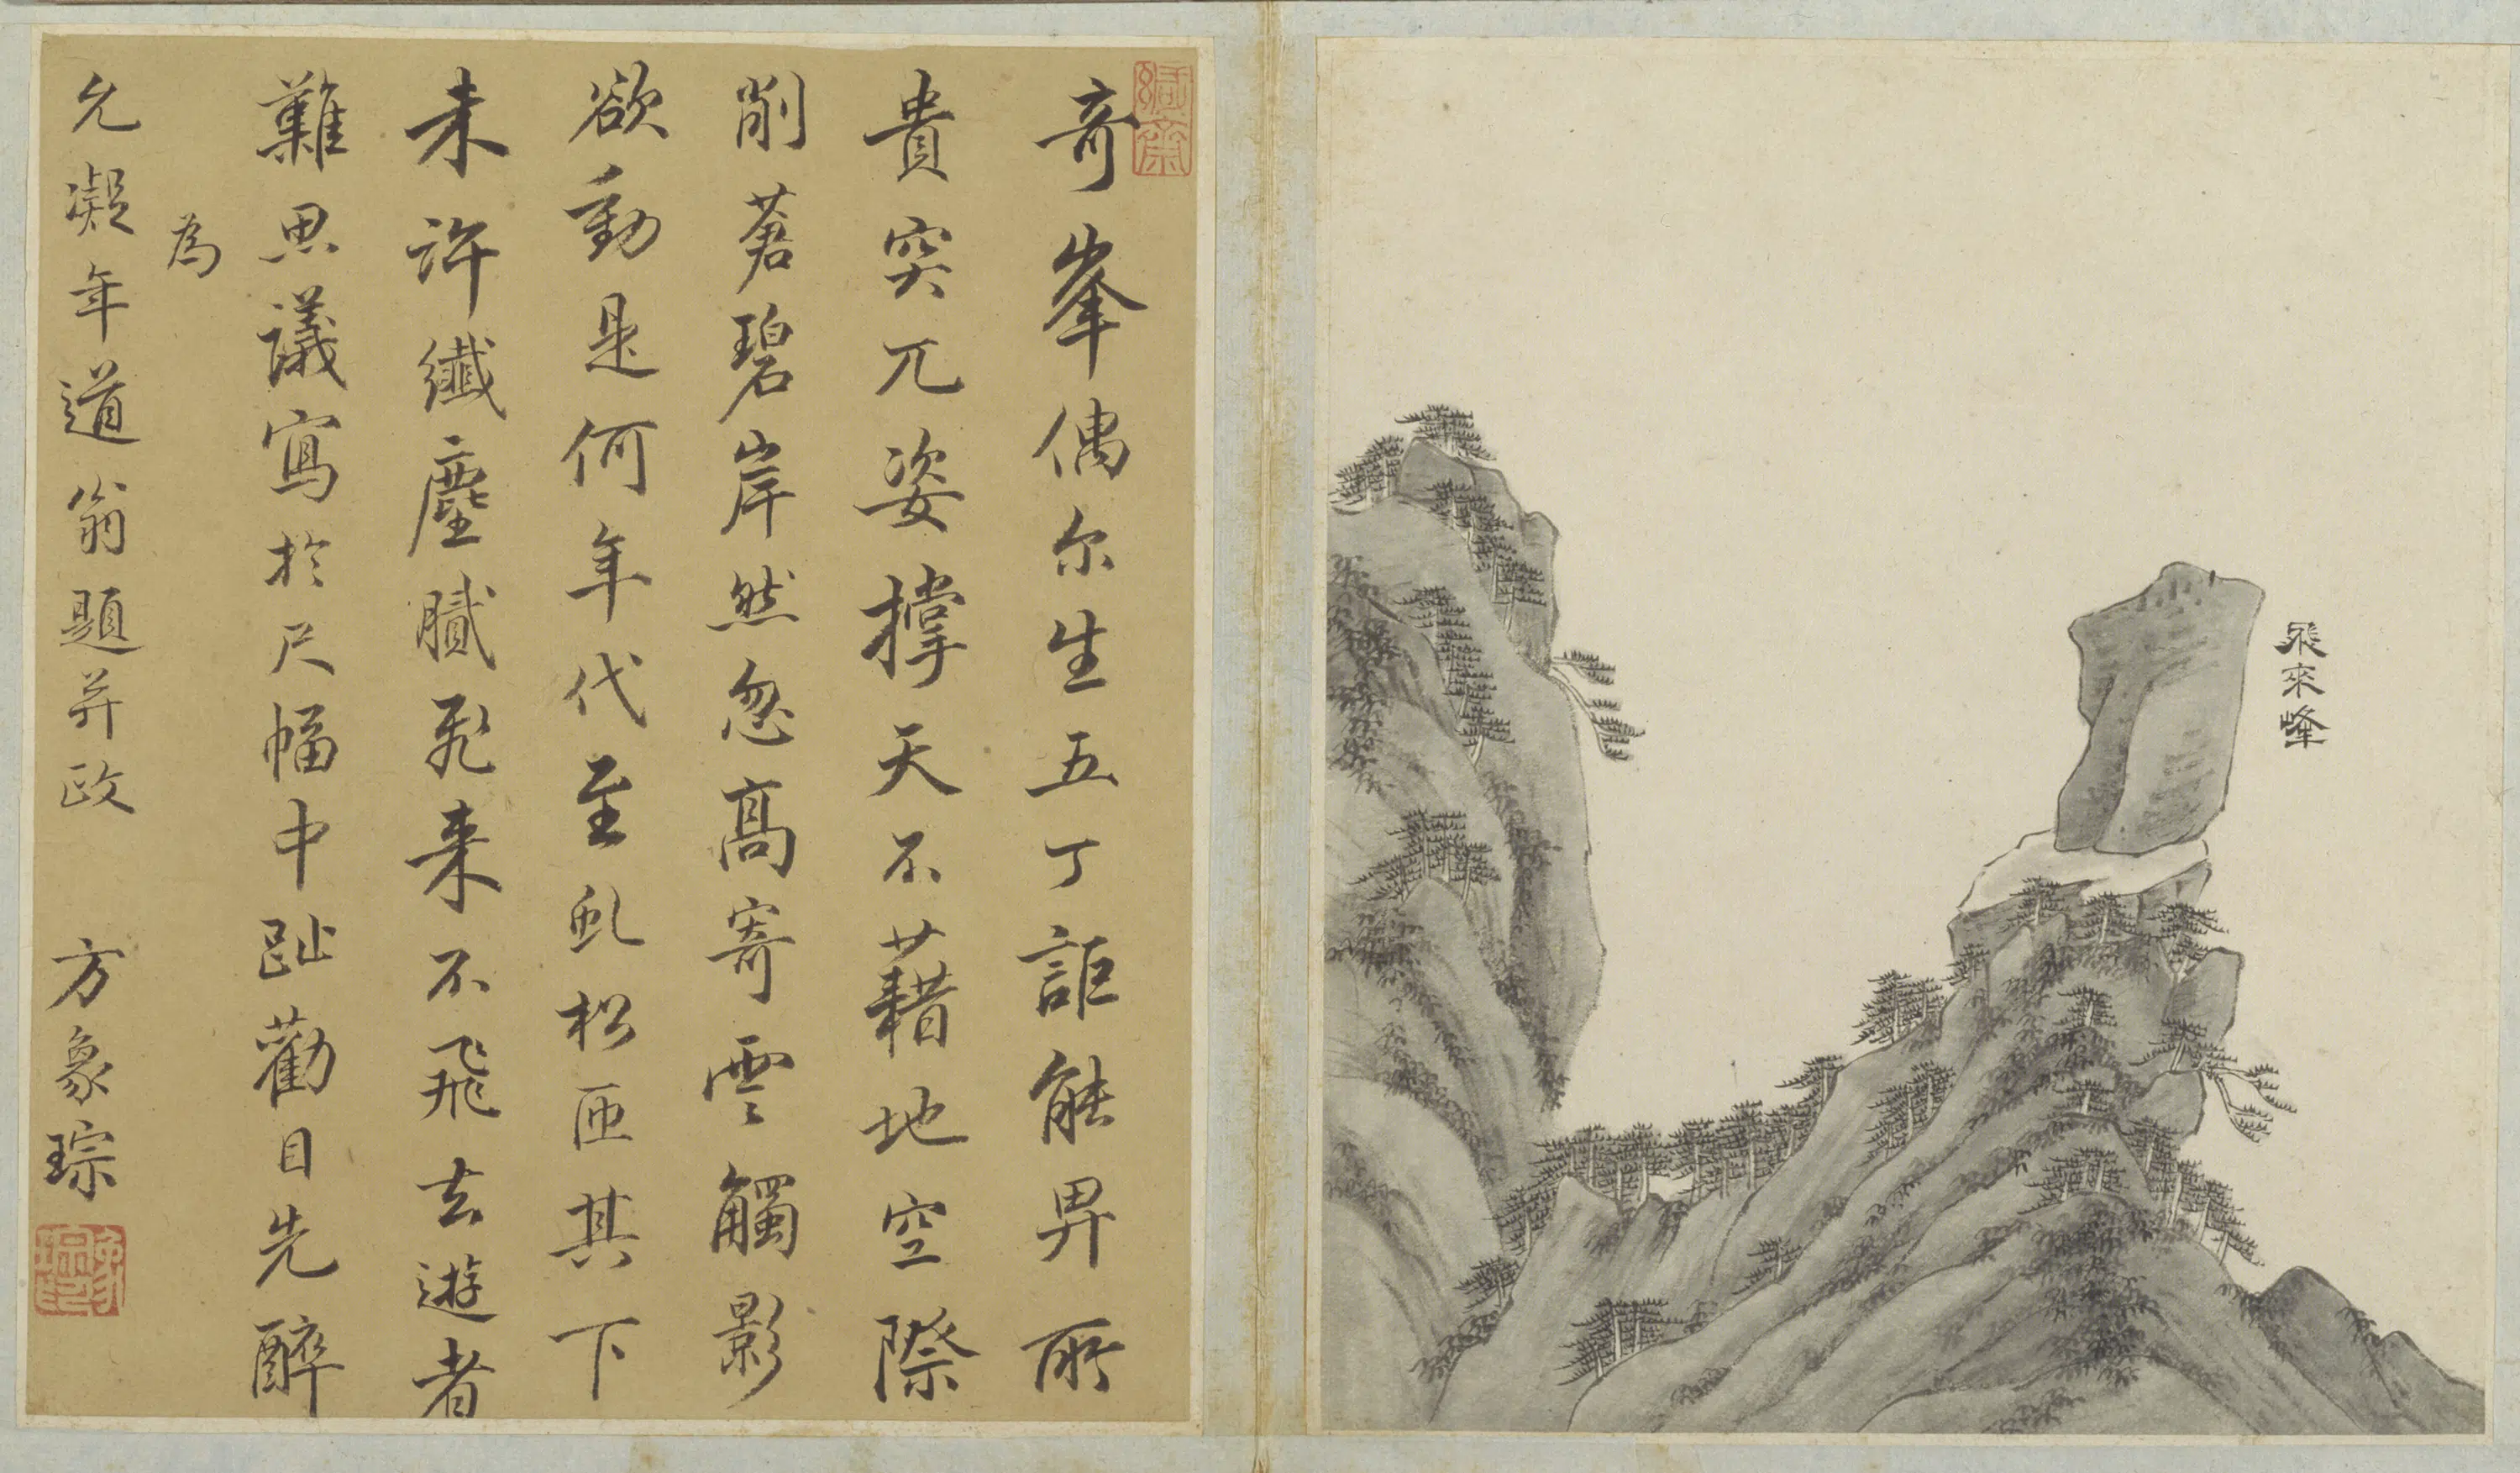 飛來峰
奇峯偶尔生五丁詎能舁所
貴突兀姿撑天不藉地空際
削蒼碧岸然忽高寄雲觸影
欲動是何年代至虬松匝其下
未許纖塵膩飛来不飛去遊者
難思議寫於尺幅中趾勸目先醉
為
允凝年道翁題并政 方象琮